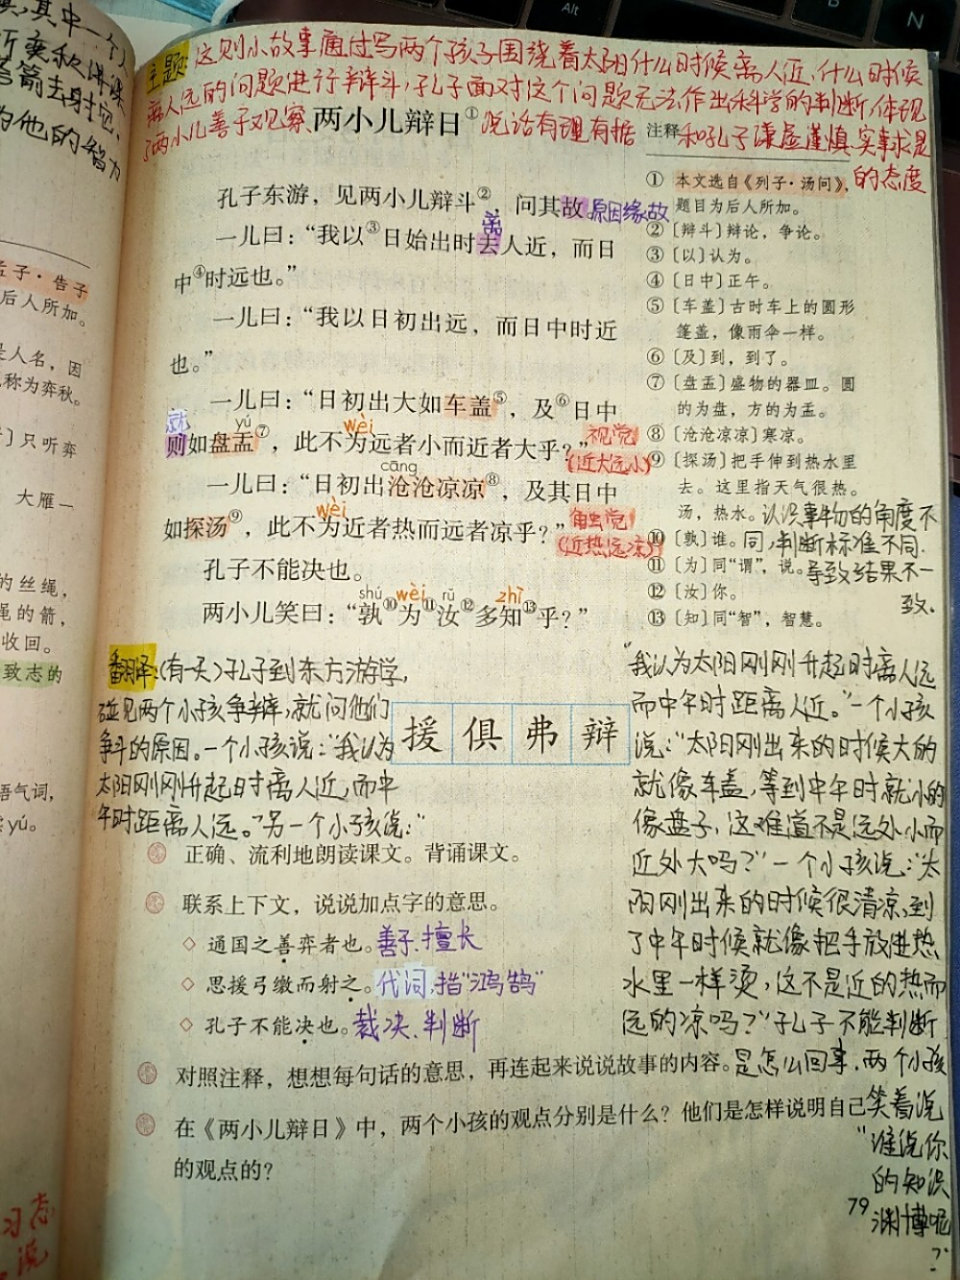 主题:这则小故事通过写两个孩子围绕着太阳什么时候离人近,什么时候
离人远的问题进行辩斗,孔子面对这个问题无法作出科学的判断,体现
了两小儿善于观察、说话有理有据
和孔子谦虚谨慎、实事求是
的态度
两小儿辩日①
孔子东游，见两小儿辩斗②，问其故 原因缘故
离
一儿曰：“我以③日始出时去人近，而日
中④时远也。”
一儿曰：“我以日初出远，而日中时近
也。”
一儿曰：“日初出大如车盖⑤，及⑥日中
就 yú wèi
则如盘盂⑦，此不为远者小而近者大乎？” 视觉
(近大远小)
cāng
一儿曰：“日初出沧沧凉凉⑧，及其日中
wèi
如探汤⑨，此不为近者热而远者凉乎？” 触觉
(近热远凉)
孔子不能决也。
shú wèi rǔ zhī
两小儿笑曰：“孰⑩为⑪汝⑫多知⑬乎？”
注释
① 本文选自《列子·汤问》，
题目为后人所加。
②〔辩斗〕辩论，争论。
③〔以〕认为。
④〔日中〕正午。
⑤〔车盖〕古时车上的圆形
篷盖，像雨伞一样。
⑥〔及〕到，到了。
⑦〔盘盂〕盛物的器皿。圆
的为盘，方的为盂。
⑧〔沧沧凉凉〕寒凉。
⑨〔探汤〕把手伸到热水里
去。这里指天气很热。
汤，热水。
⑩〔孰〕谁。
⑪〔为〕同“谓”，说。
⑫〔汝〕你。
⑬〔知〕同“智”，智慧。
认识事物的角度不
同,判断标准不同.
导致结果不一
致.
翻译:(有一天)孔子到东方游学,
碰见两个小孩争辩,就问他们
争斗的原因。一个小孩说:“我认为
太阳刚刚升起时离人近,而中
午时距离人远。”另一个小孩说:“
“我认为太阳刚刚升起时离人远
而中午时距离人近。”一个小孩
说:“太阳刚出来的时候大的
就像车盖,等到中午时就小的
像盘子,这难道不是远处小而
近处大吗?”一个小孩说:“太
阳刚出来的时候很清凉,到
了中午时候就像把手放进热
水里一样烫,这不是近的热而
远的凉吗?”孔子不能判断
是怎么回事.两个小孩
笑着说
“谁说你
的知识
渊博呢
?”
援 俱 弗 辩
正确、流利地朗读课文。背诵课文。
联系上下文，说说加点字的意思。
◇ 通国之善弈者也。善于.擅长
◇ 思援弓缴而射之。代词,指“鸿鹄”
◇ 孔子不能决也。裁决.判断
对照注释，想想每句话的意思，再连起来说说故事的内容。
在《两小儿辩日》中，两个小孩的观点分别是什么？他们是怎样说明自己
的观点的？
79
其中一个人
去射它,
为他的智力
孟子·告子
后人所加。
是人名，因
称为弈秋。
〕只听弈
大雁一
的丝绳，
绳的箭，
收回。
致志的
语气词，
读yú。